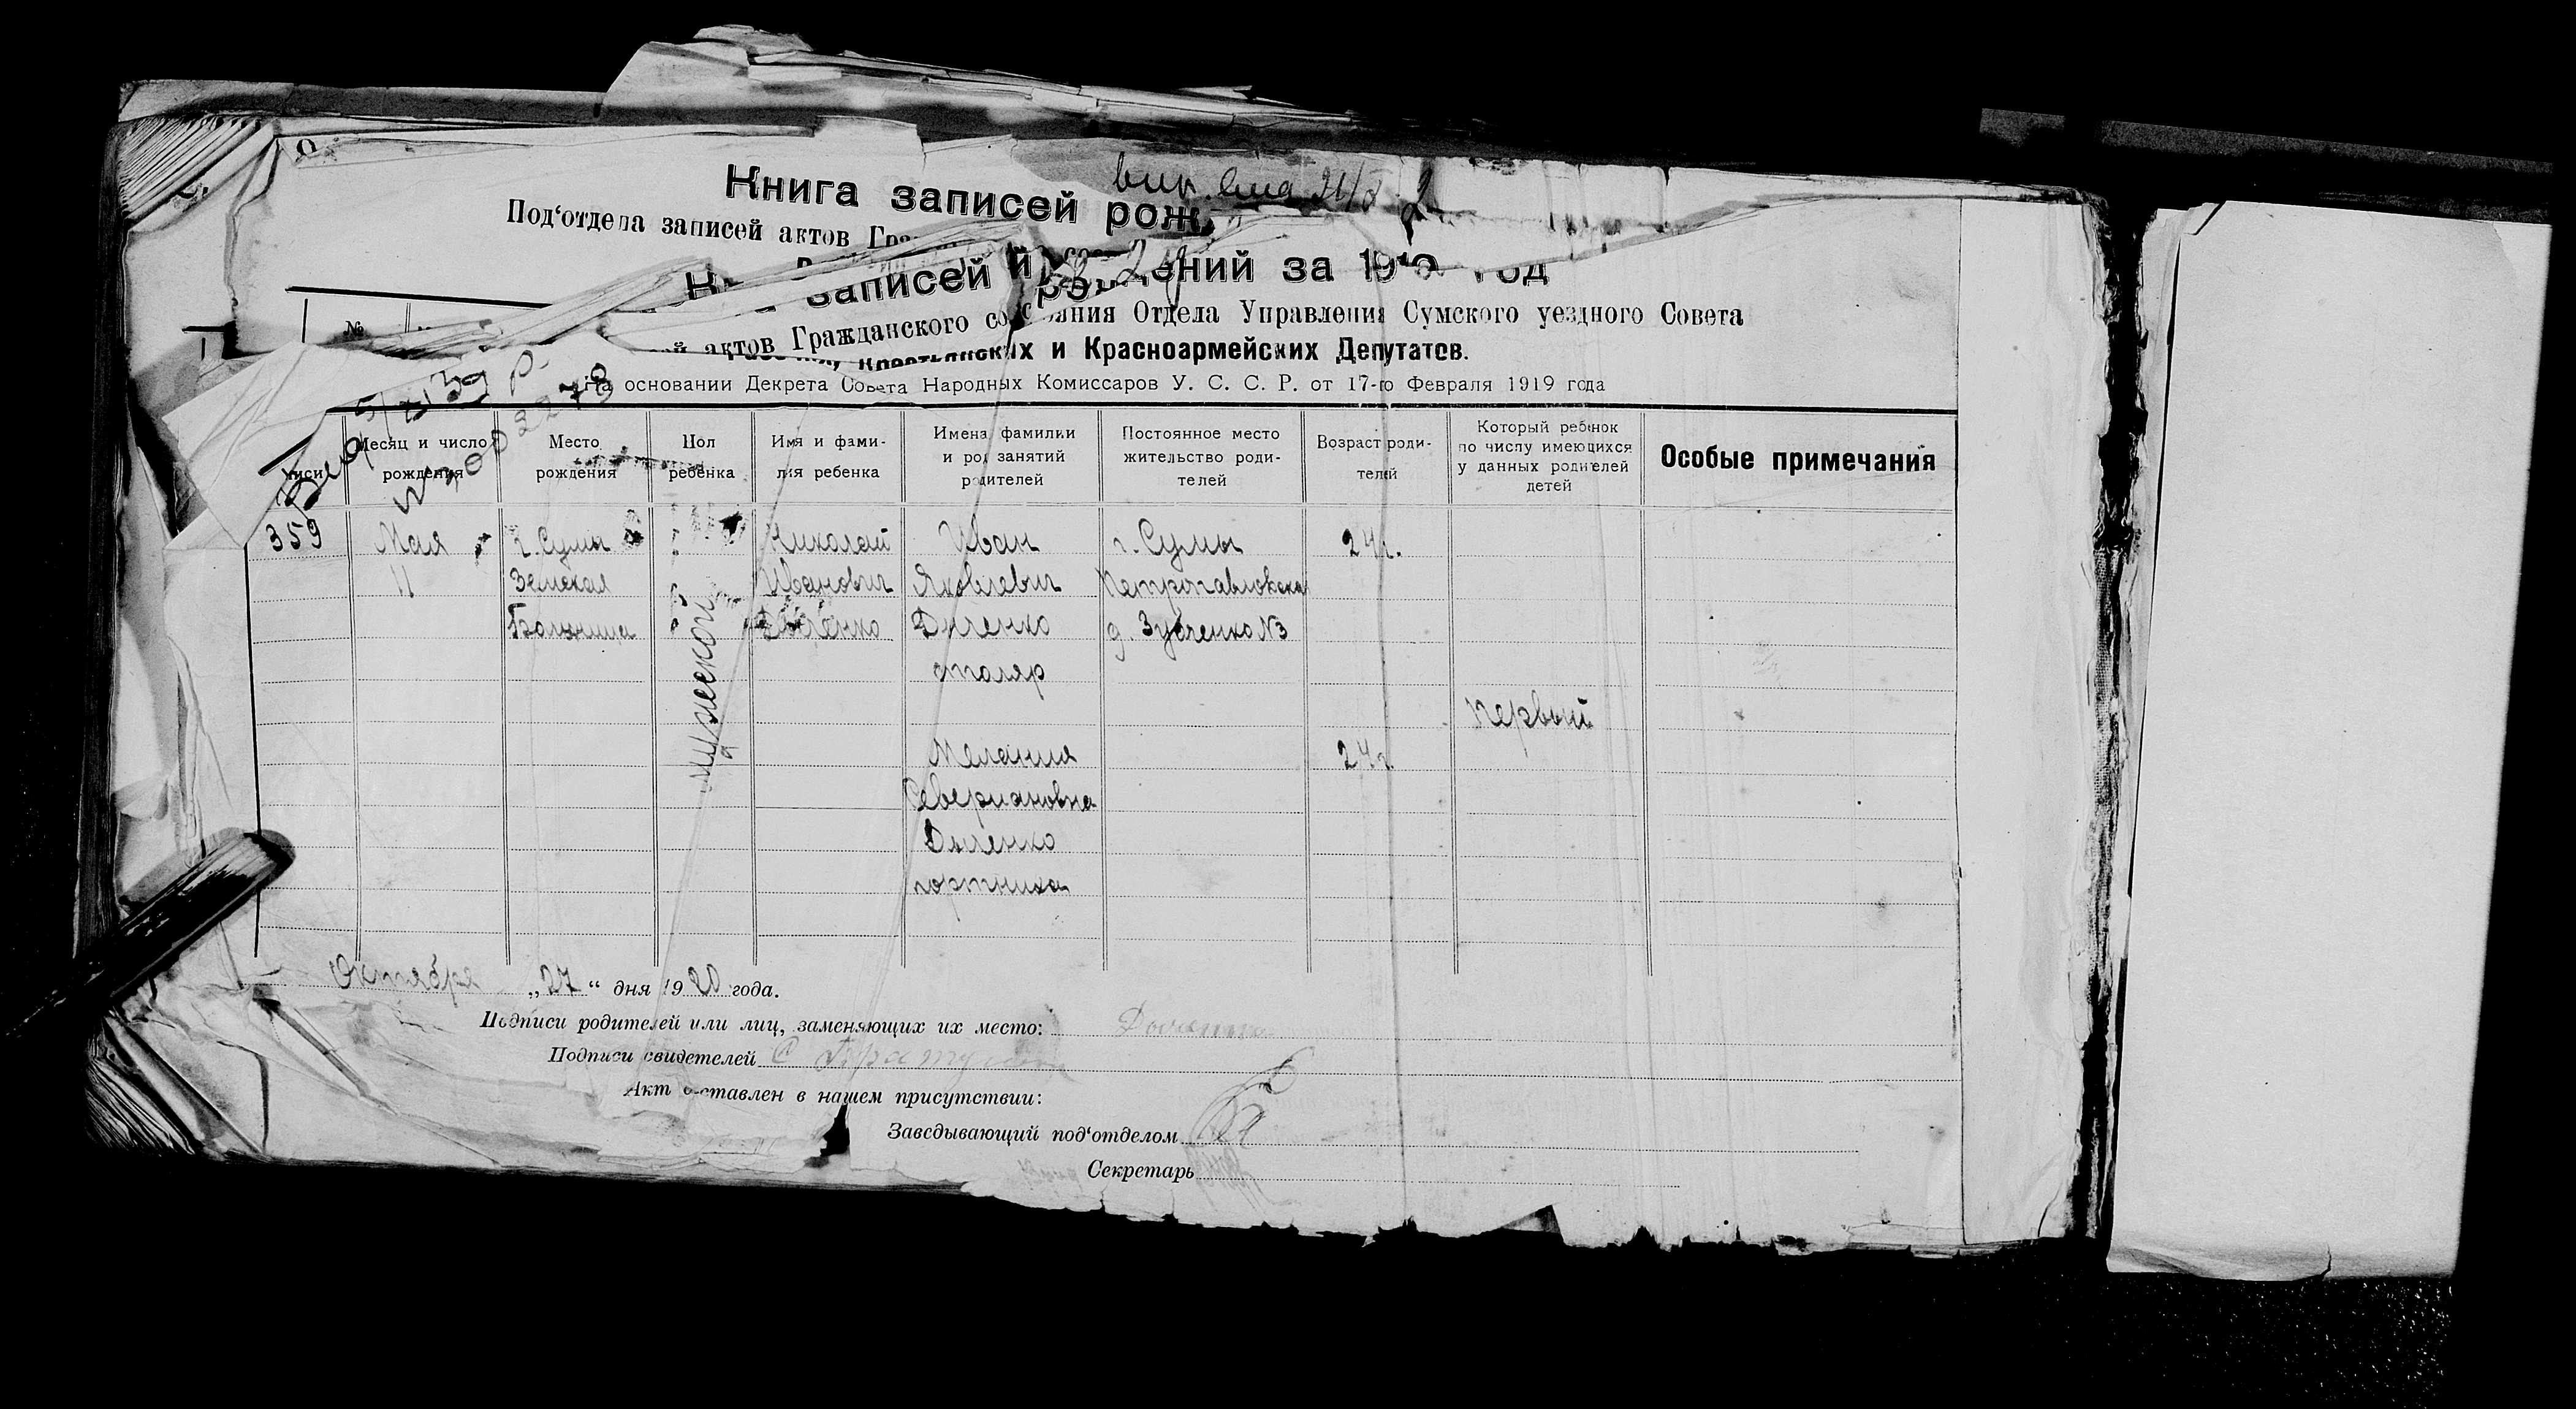 Книга записей рож
Под‘отдела записей актов
записей рождений за 19 год
актов Гражданского состояния Отдела Управления Сумского уездного Совета
Крестьянских и Красноармейских Депутатов.
На основании Декрета Совета Народных Комиссаров У. С. С. Р. от 17-го Февраля 1919 года
№
писи
Месяц и число рождения
Место рождения
Пол ребенка
Имя и фами-
лия ребенка
Имена, фамилии
и род занятий
родителей
Постоянное место
жительство роди-
телей
Возраст роди-
телей
Который ребенок
по числу имеющихся
у данных родителей
детей
Особые примечания
359
Мая
11
г. Сумы
Земская
Больница
мужеского
Николай
Иванович
Иван
Яковлевич
Дяченко
столяр
Мелания
Севериановна
Дяченко
портниха
г. Сумы
Петропавловская
д. Зубченко №3
24г.
24г.
первый
Октября „27“ дня 1920 года.
Подписи родителей или лиц, заменяющих их место:
Подписи свидетелей
Акт составлен в нашем присутствии:
Заведывающий под‘отделом
Секретарь